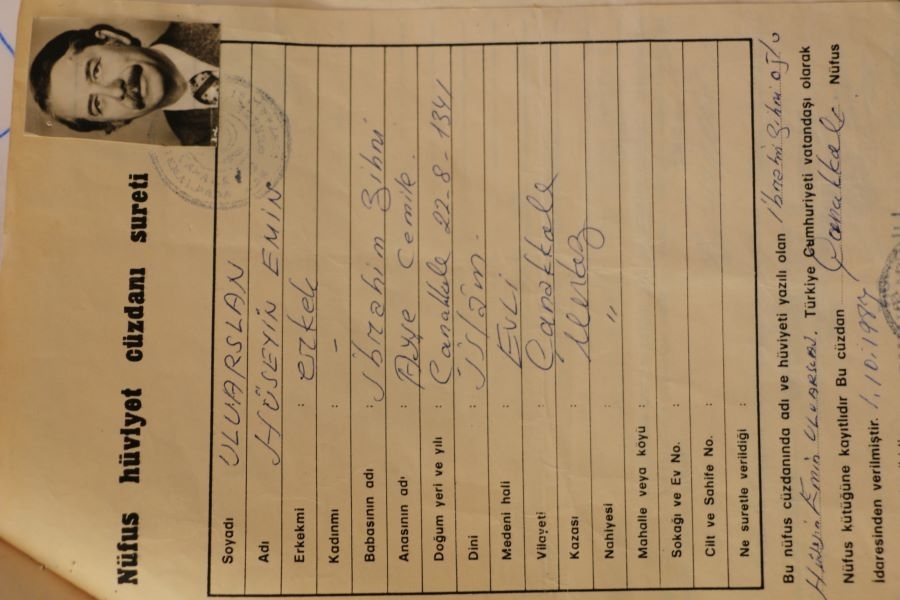 Nüfus hüviyet cüzdanı sureti
Soyadı ULUARSLAN
Adı HÜSEYİN EMİN
Erkekmi : erkek
Kadınmı : -
Babasının adı : İbrahim Zihni
Anasının adı : Ayşe Cemile
Doğum yeri ve yılı : Çanakkale 22-8-1341
Dini : İslâm.
Medeni hali : EVLİ
Vilayeti : Çanakkale
Kazası : Merkez
Nahiyesi : "
Mahalle veya köyü :
Sokağı ve Ev No. :
Cilt ve Sahife No. :
Ne suretle verildiği :
Bu nüfus cüzdanında adı ve hüviyeti yazılı olan İbrahim Zihni oğlu
Hüseyin Emin ULUARSLAN. Türkiye Cumhuriyeti vatandaşı olarak
Nüfus kütüğüne kayıtlıdır Bu cüzdan Çanakkale Nüfus
İdaresinden verilmiştir. 1.10.1987